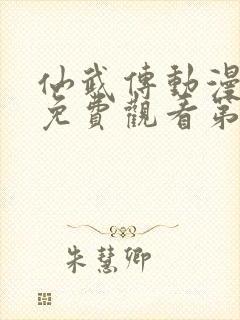 仙武傳動漫
免費觀看第
朱慧卿